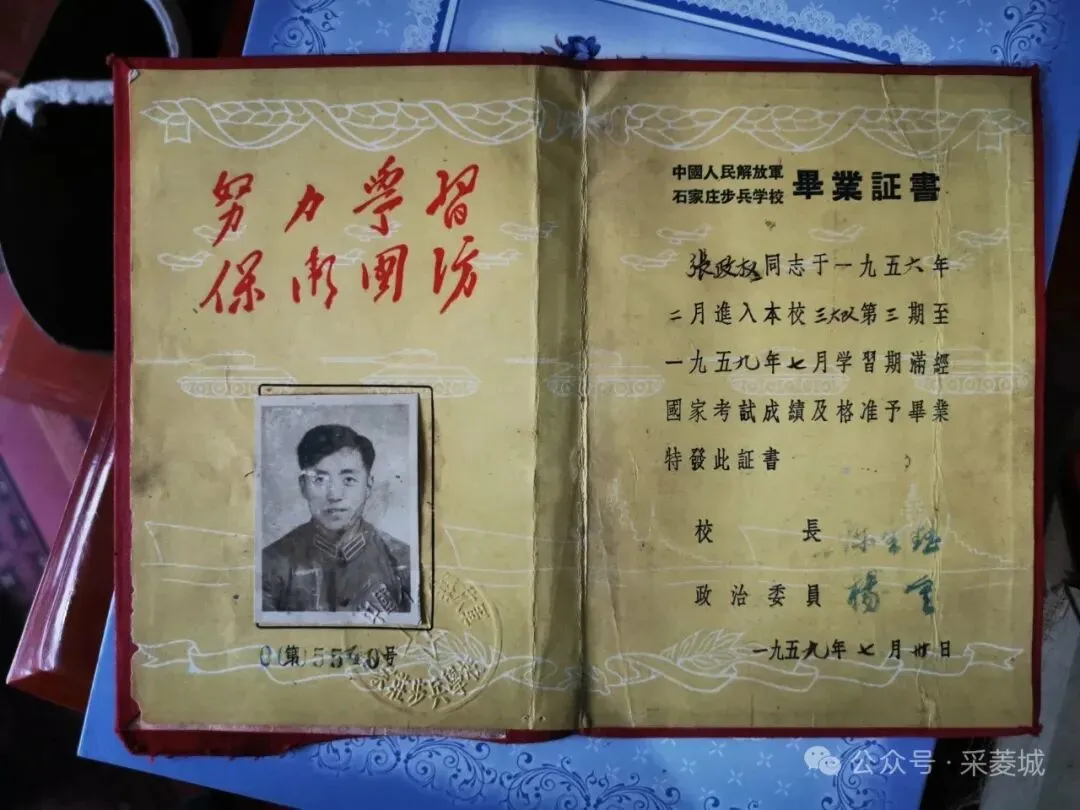 努力學習
保衛國防
0(第)5540号
中國人民解放軍
石家庄步兵学校
畢業証書
張政权同志于一九五六年
二月進入本校三大队第三期至
一九五九年七月学習期滿經
國家考試成績及格准予畢業
特發此証書
校長
政治委員 楊
一九五九年七月卅日
步兵學校
公众号·采菱城